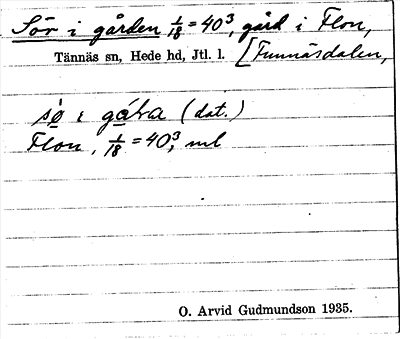 Sör i gården 1/18 = 40³, gård i Flon,
Tännäs sn, Hede hd, Jtl. l. [Funnäsdalen,
(dat.)
Flon, 1/18 = 40³, ml
O. Arvid Gudmundson 1935.